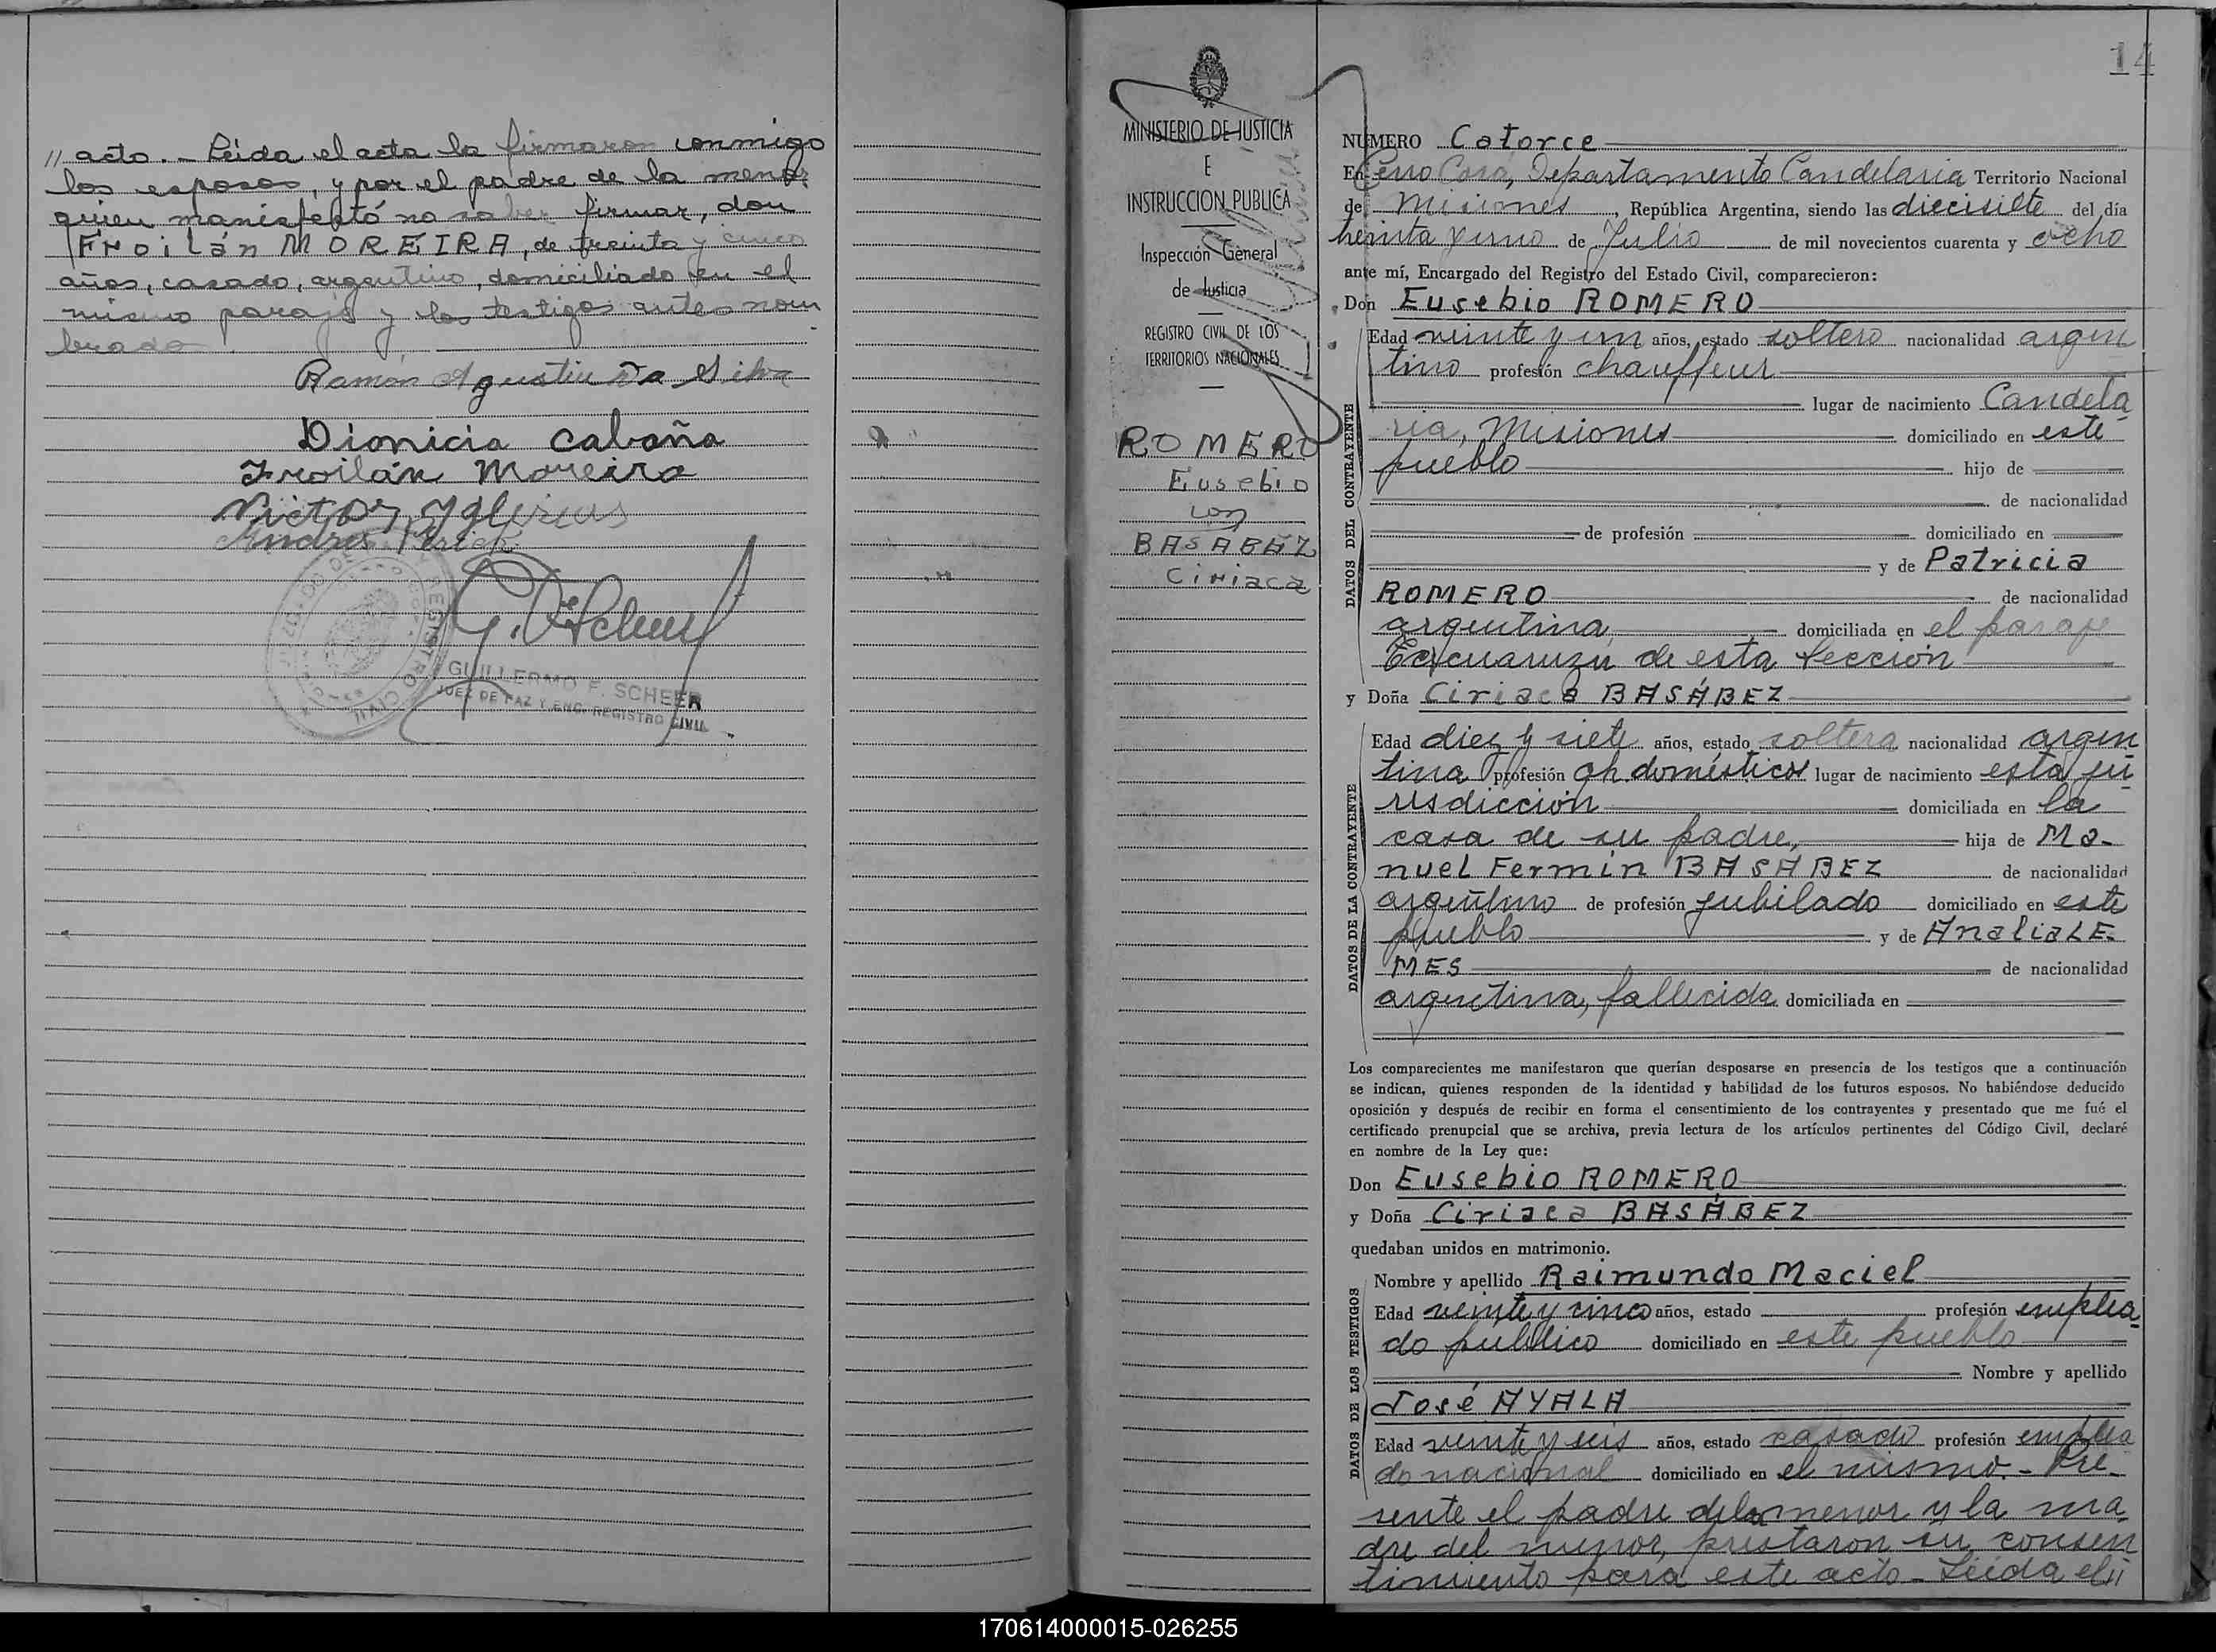 // acto. - Leída el acta la firmaron conmigo
los esposos, y por el padre de la menor
quien manifestó no saber firmar, don
Froilán MOREIRA, de treinta y cinco
años, casado, argentino, domiciliado en el
mismo paraje y los testigos antes nom
brado
Ramón Agustin Da Silva
Dionicia Cabaña
Froilán Moreira
Victor
Andres
G. Scheer
REGISTRO CIVIL
GUILLERMO F. SCHEER
JUEZ DE PAZ Y ENC. REGISTRO CIVIL
MINISTERIO DE JUSTICIA
E
INSTRUCCION PUBLICA
Inspección General
de Justicia
REGISTRO CIVIL DE LOS
TERRITORIOS NACIONALES
ROMERO
Eusebio
con
BASABEZ
Ciriaca
14
NUMERO Catorce
En Cerro Corá, Departamento Candelaria Territorio Nacional
de Misiones, República Argentina, siendo las diecisiete del día
treinta y uno de Julio de mil novecientos cuarenta y ocho
ante mí, Encargado del Registro del Estado Civil, comparecieron:
Don Eusebio ROMERO
DATOS DEL CONTRAYENTE
Edad veinte y un años, estado soltero nacionalidad argen
tino profesión chauffeur
lugar de nacimiento Candela
ria, Misiones domiciliado en este
pueblo hijo de
de nacionalidad
de profesión domiciliado en
y de Patricia
ROMERO de nacionalidad
argentina, domiciliada en el paraje
de esta Sección
y Doña Ciriaca BASÁBEZ
DATOS DE LA CONTRAYENTE
Edad diez y siete años, estado soltera nacionalidad argen
tina profesión qh. domésticos lugar de nacimiento esta ju
risdicción domiciliada en la
casa de su padre, hija de Ma-
nuel Fermin BASABEZ de nacionalidad
argentino de profesión jubilado domiciliado en este
pueblo y de Analia LE-
MES de nacionalidad
argentina, fallecida domiciliada en
Los comparecientes me manifestaron que querían desposarse en presencia de los testigos que a continuación
se indican, quienes responden de la identidad y habilidad de los futuros esposos. No habiéndose deducido
oposición y después de recibir en forma el consentimiento de los contrayentes y presentado que me fué el
certificado prenupcial que se archiva, previa lectura de los artículos pertinentes del Código Civil, declaré
en nombre de la Ley que:
Don Eusebio ROMERO
y Doña Ciriaca BASÁBEZ
quedaban unidos en matrimonio.
DATOS DE LOS TESTIGOS
Nombre y apellido Raimundo Maciel
Edad veinte y cinco años, estado profesión emplea-
do publico domiciliado en este pueblo
Nombre y apellido
José AYALA
Edad veinte y seis años, estado casado profesión emplea
do nacional domiciliado en el mismo. - Pre-
sente el padre de la menor y la ma
dre del menor, prestaron su consen
timiento para este acto - Leida el //
170614000015-026255